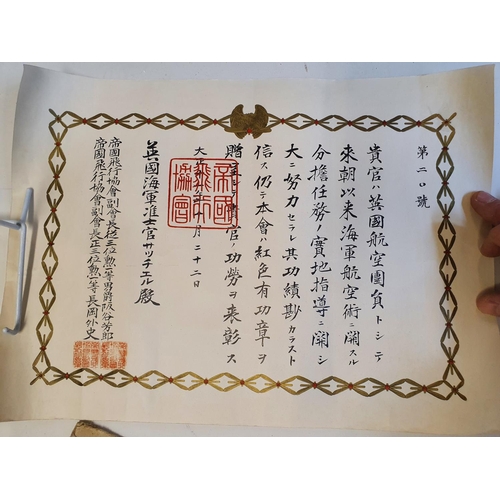 第二〇號
貴官ハ英國航空團員トシテ
來朝以来海軍航空術ニ關スル
分擔任務ノ實地指導ニ關シ
大ニ努力セラレ其功績尠カラスト
信ス仍テ本會ハ紅色有功章ヲ
贈呈シ貴官ノ功勞ヲ表彰ス
大正 年 月二十二日
帝國飛行協會
英國海軍准士官サッチエル殿
帝國飛行協會副會長從三位勲一等男爵阪谷芳郎
帝國飛行協會副會長正三位勲一等長岡外史